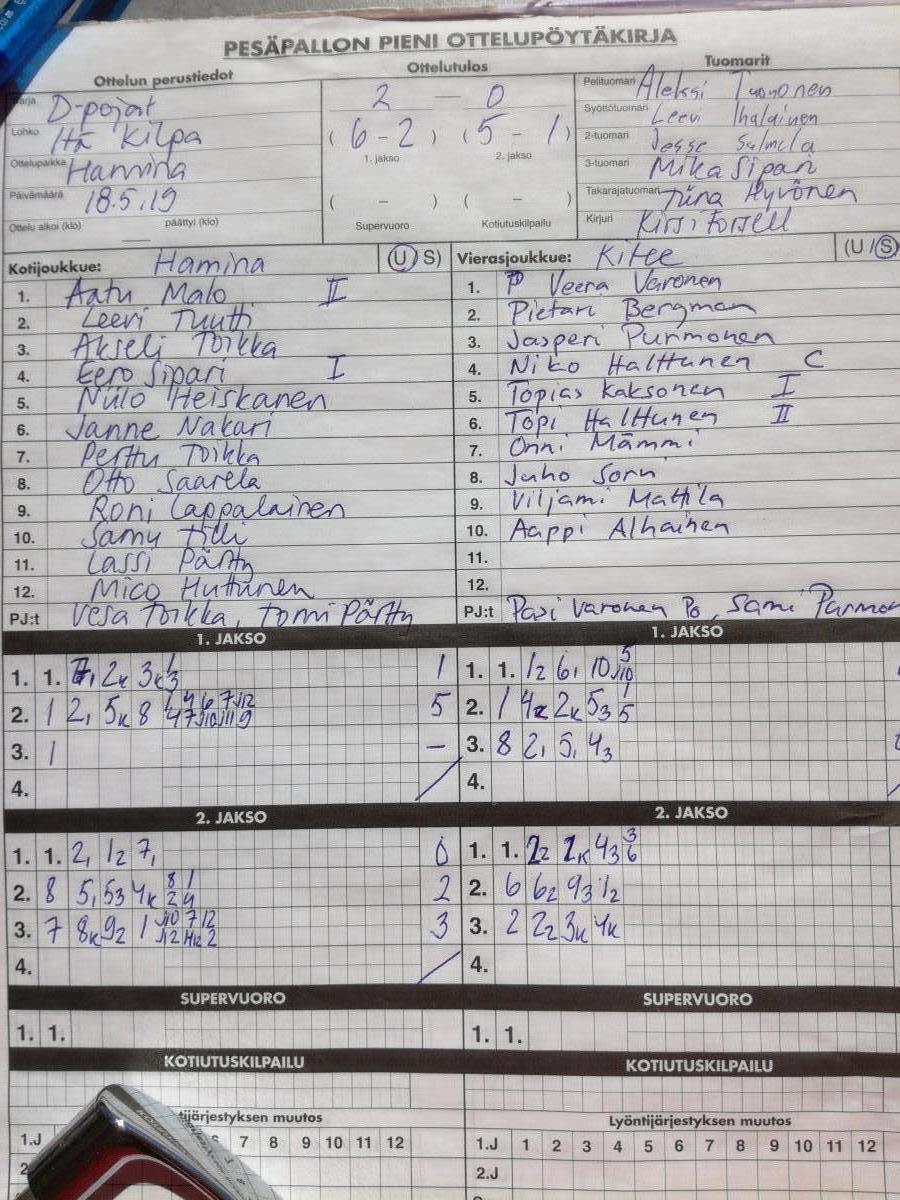 PESÄPALLON PIENI OTTELUPÖYTÄKIRJA
Ottelun perustiedot
Ottelutulos
Tuomarit
Sarja D-pojat
Lohko Itä Kilpa
Ottelupaikka Hamina
Päivämäärä 18.5.19
Ottelu alkoi (klo) — päättyi (klo)
2 — 0
(6-2) (5-1)
1. jakso 2. jakso
( - ) ( - )
Supervuoro Kotiutuskilpailu
Pelituomari Aleksi
Syöttötuomari Leevi Ihalainen
2-tuomari Jesse
3-tuomari Mika Sipari
Takarajatuomari Tiina Hyvönen
Kirjuri Kirsi Forsell
Kotijoukkue: Hamina (U S)
1. Aatu Malo II
2. Leevi Tuutti
3. Akseli Toikka
4. Eero Sipari I
5. Niilo Heiskanen
6. Janne Nakari
7. Perttu Toikka
8. Otto Saarela
9. Roni Lappalainen
10. Samu Tilli
11. Lassi Pärtty
12. Mico Huttunen
PJ:t Vesa Toikka, Tomi Pärtty
Vierasjoukkue: Kitee (U/S)
1. Veera Varonen
2. Pietari Bergman
3. Jasperi Purmonen
4. Niko Halttunen C
5. Topias Kaksonen I
6. Topi Halttunen II
7. Onni Mämmi
8. Juho Sorvi
9. Viljami Mattila
10. Aappi Alhainen
11.
12.
PJ:t Pasi Varonen Po, Sami
1. JAKSO
1. 1. 2k 3k 1
2. 1 2, 5k 8 5
3. 1 —
4.
1. JAKSO
1. 1. 1/2 6, 10
2. 1 2k 53
3. 8 2, 5, 43
4.
2. JAKSO
1. 1. 2, 12 7, 0
2. 8 5, 53 4k 8 1 2 4 2
3. 7 8k 92 1 3
4.
2. JAKSO
1. 1. 43
2. 6 62 93 12
3. 2 22 3k 4k
4.
SUPERVUORO
1. 1.
SUPERVUORO
1. 1.
KOTIUTUSKILPAILU
KOTIUTUSKILPAILU
tijärjestyksen muutos
1.J 7 8 9 10 11 12
2
Lyöntijärjestyksen muutos
1.J 1 2 3 4 5 6 7 8 9 10 11 12
2.J